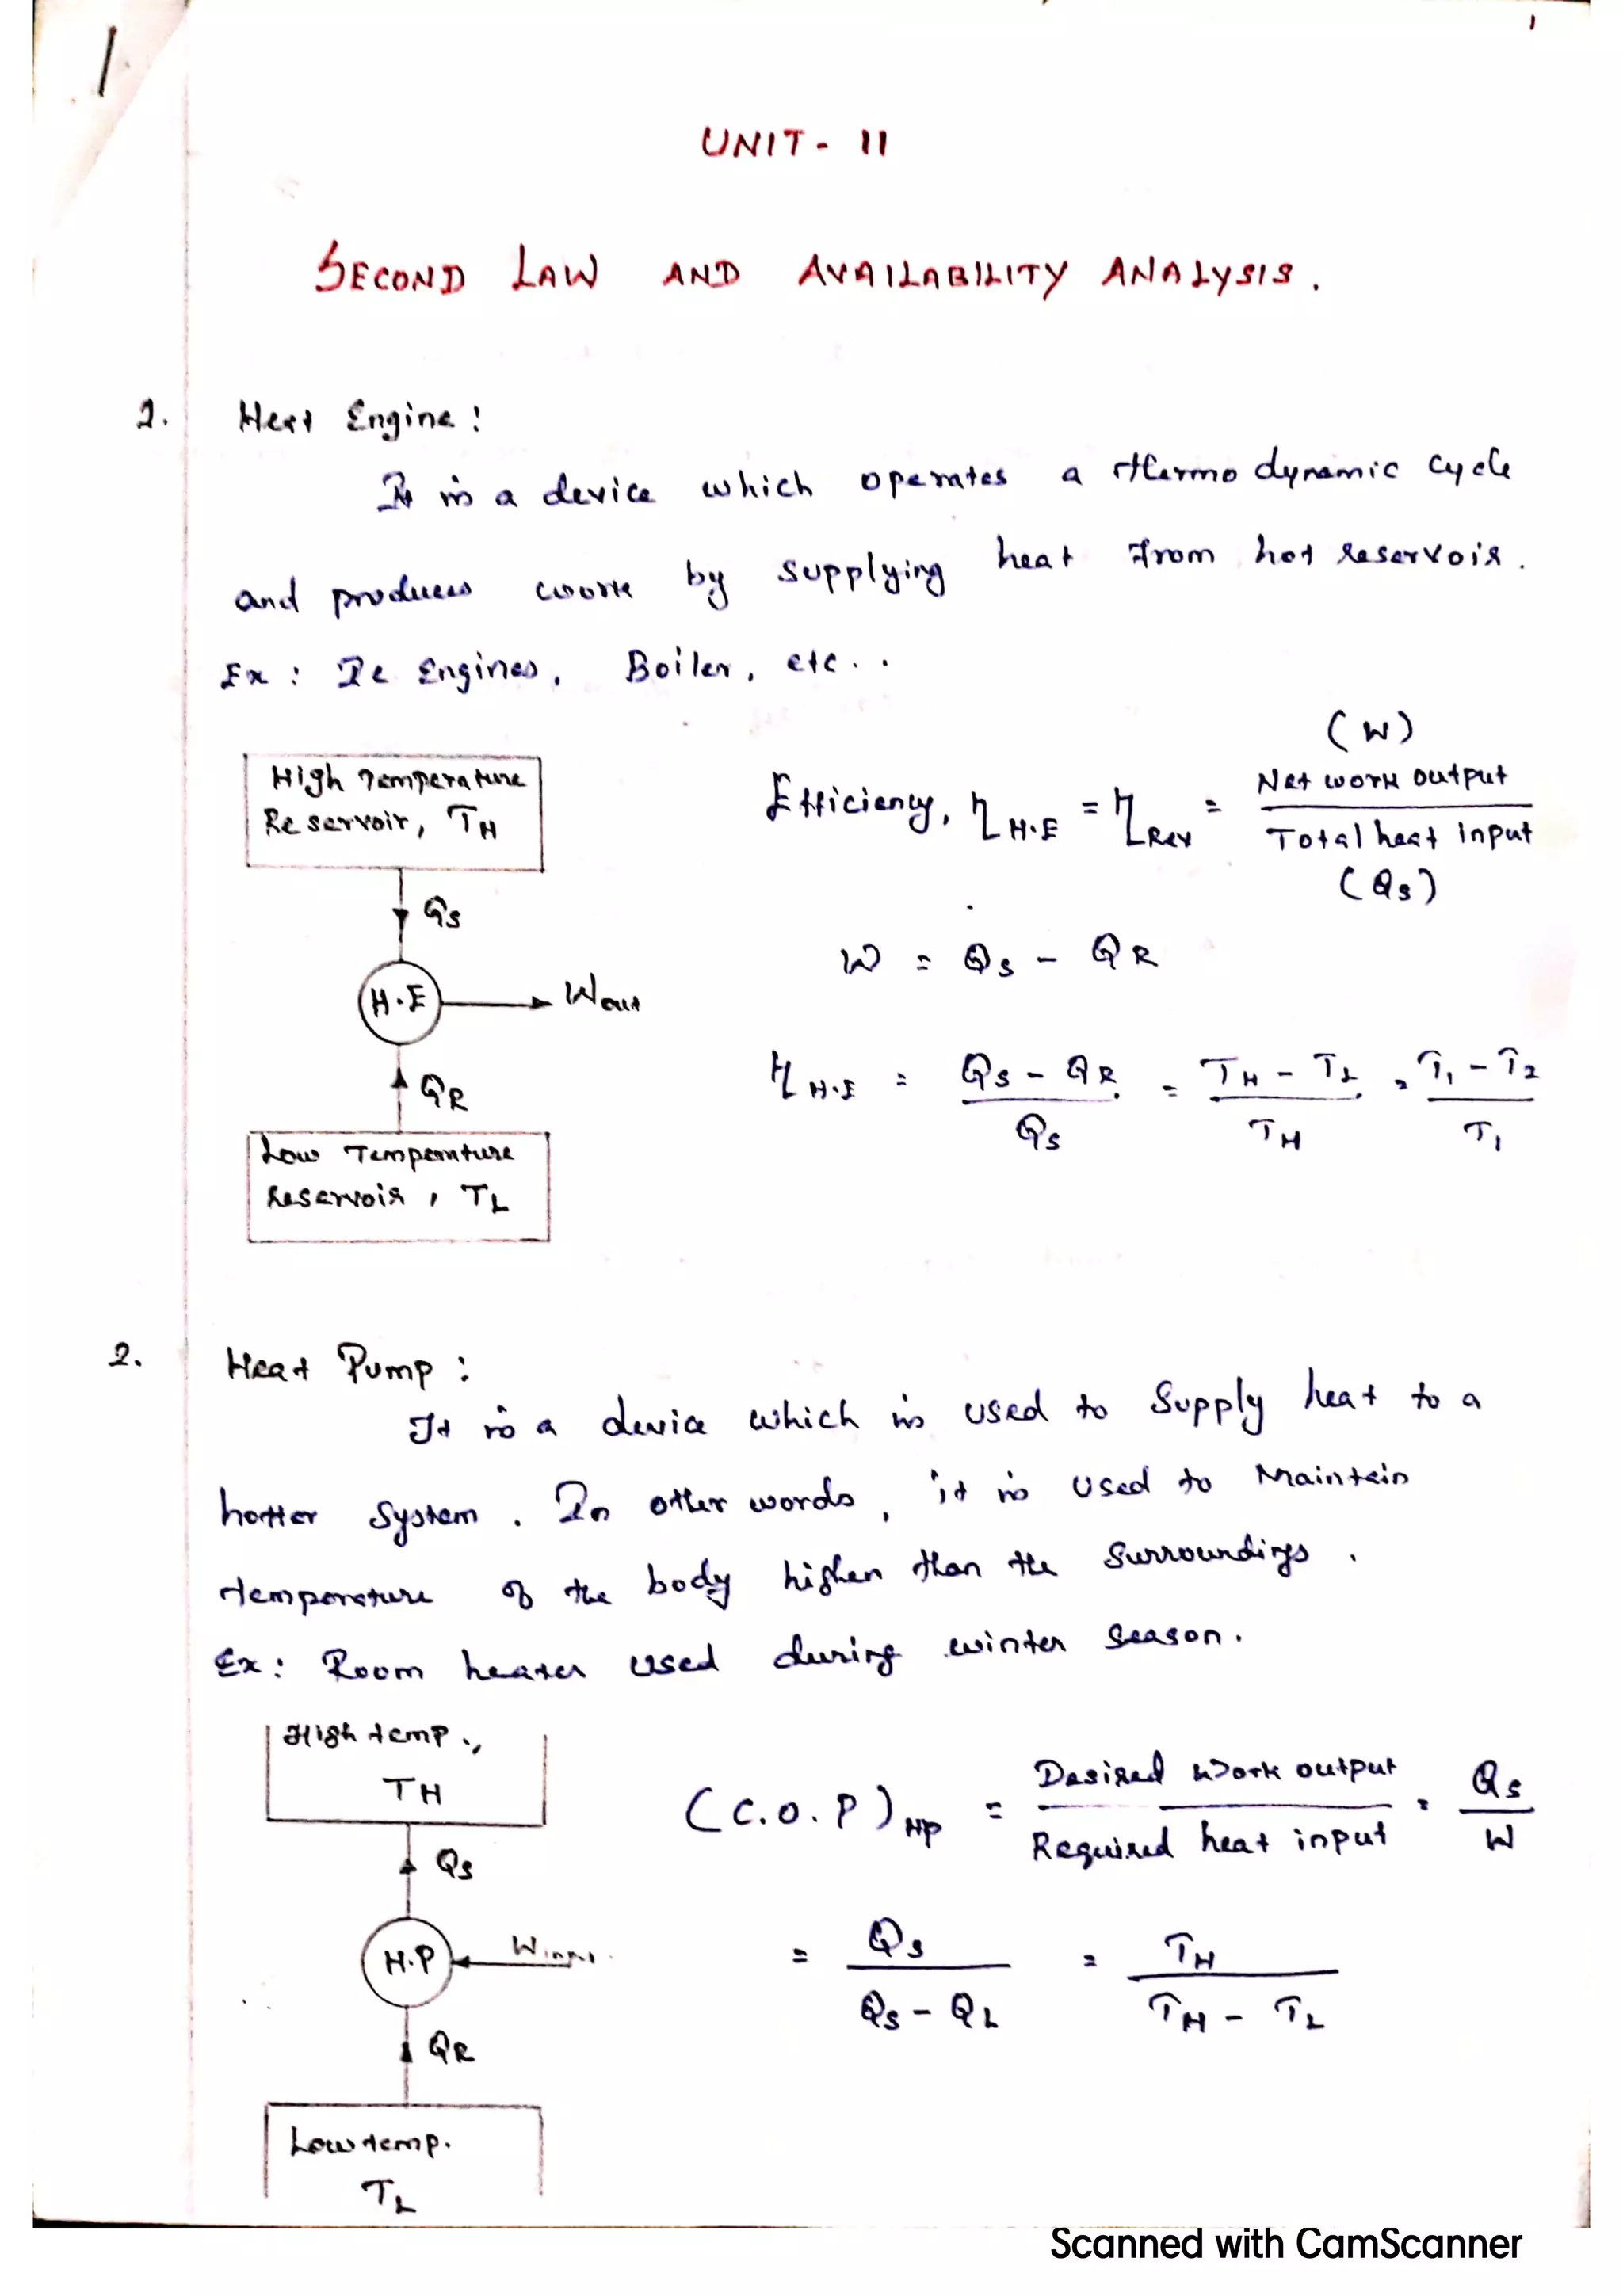 1
1
UNIT - II
SECOND LAW AND AVAILABILITY ANALYSIS.
1. Heat Engine:
It is a device which operates a thermo dynamic cycle
and produces work by supplying heat from hot reservoir.
Ex: Ic Engines, Boiler, etc..
High Temperature
Reservoir, TH
QS
H.E
Wout
QR
Low Temperature
Reservoir, TL
(W)
Efficiency, ηH.E = ηRev = Net work output / Total heat input
(QS)
W = QS - QR
ηH.E = QS - QR / QS = TH - TL / TH = T1 - T2 / T1
2. Heat Pump:
It is a device which is used to supply heat to a
hotter system. In other words, it is used to Maintain
temperature of the body higher than the surroundings.
Ex: Room heater used during winter season.
High temp.,
TH
QS
H.P
Winput
QR
Low temp.
TL
(C.O.P)HP = Desired work output / Required heat input = QS / W
= QS / QS - QL = TH / TH - TL
Scanned with CamScanner